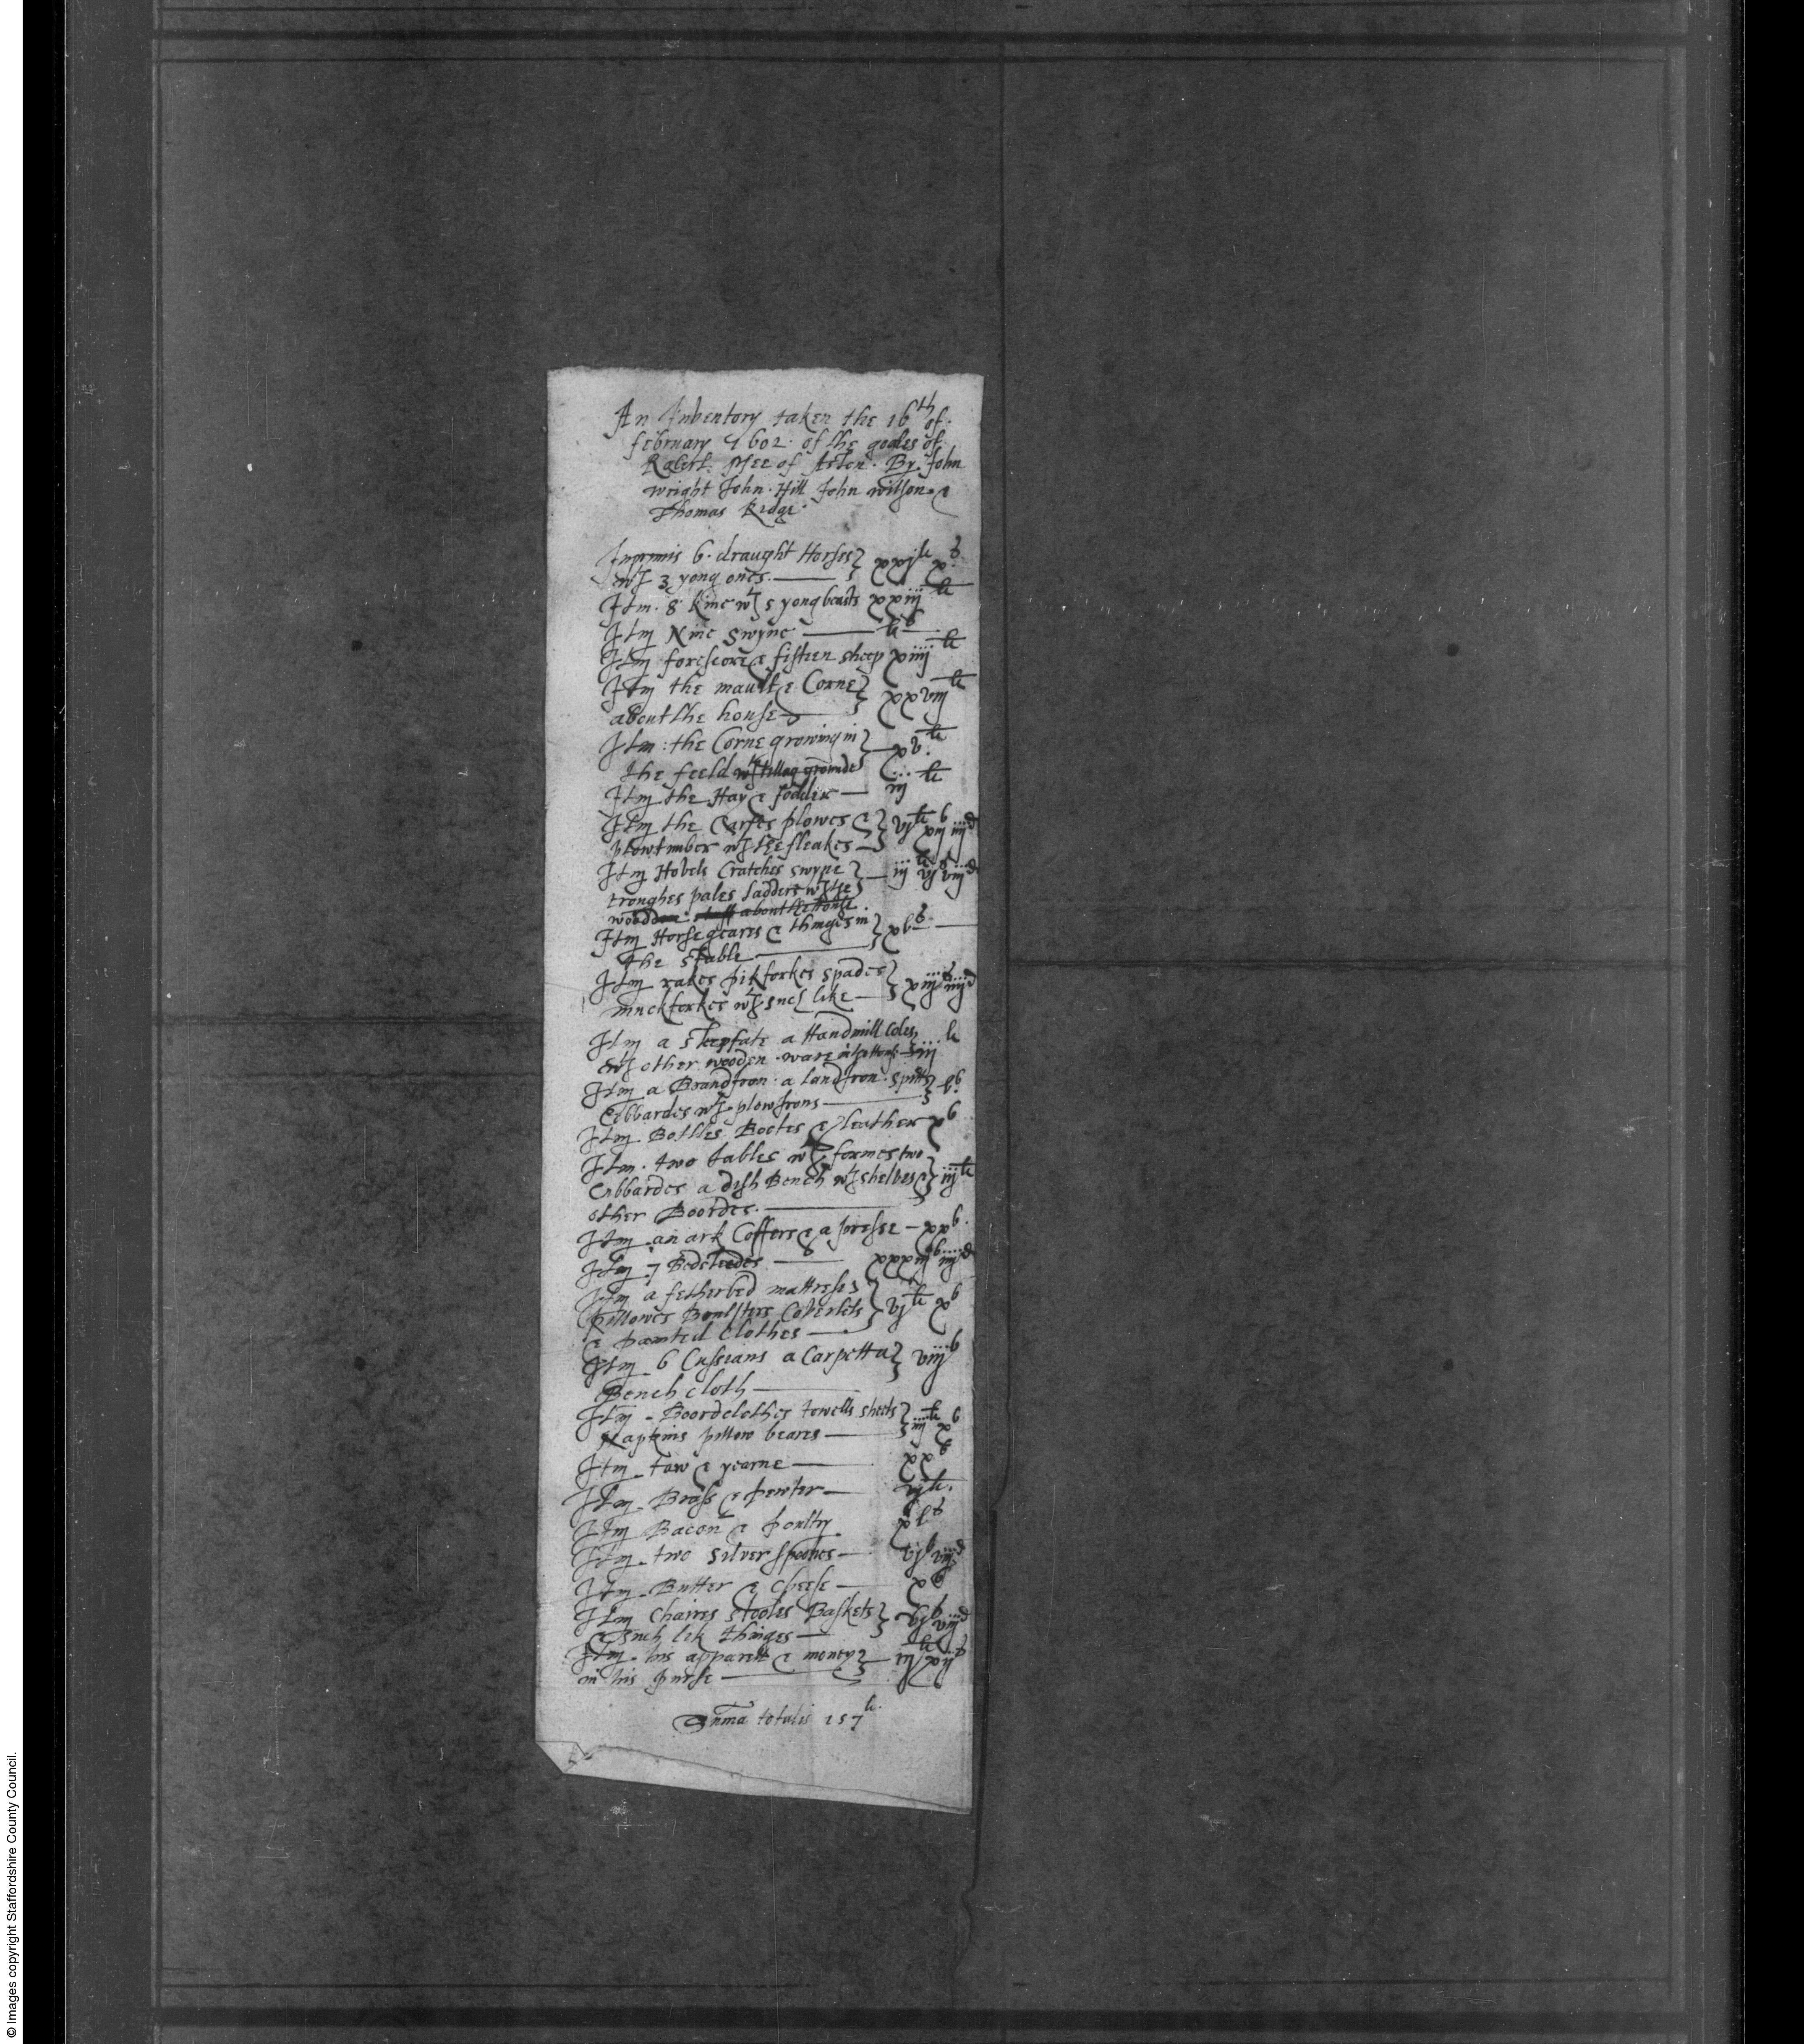 An Inventory taken the 16th of
february 1602. of the goodes of
Robert of Aston. By. John
wright John. Hill John wilson. &
Thomas Kidge.
Inprimis 6. draught Horses
wth 3 yong ones. xxjli xs
Itm. 8. Kine wth 5 yong beasts xxiijli
Itm Nine Swyne ls
Itm forescore & fifteen sheep xiiijli
Itm the mault & Corne
about the house xxviijli
Itm: the Corne growing in
the feeld wth tillag grounde xv.li
Itm the Hay & fodder iijli
Itm the Cartes plowes &
plowtimber wth the fleakes vjli xiijs iiijd
Itm Hovels Cratches swyne
troughes pales ladders wth the iijli vjs viijd
wooddon stuff about the house.
Itm Horsegeares & thinges in
the stable xls
Itm rakes pikforkes spades
muckforkes wth such like xiijs iiijd
Itm a steepfate a Handmill Coles,
wth other wooden ware iijli
Itm a Brandiron a landiron spitts
Cobbardes wth plowIrons ls
Itm Bottles Bootes & leather xs
Itm. two tables wth formes two
Cubbardes a dish Bench wth shelves & iijli
other Boordes.
Itm an ark Coffers & a presse xxs.
Itm 7 Bedsteedes xxxiijs iiijd
Itm a fetherbed mattresses
pillowes Boulsters Coverlets vjli xs
& painted Clothes
Itm 6 Cussians a Carpett a viijs
Bench cloth
Itm Boordclothes towells sheets
Napkins pillow beares iiijli xs
Itm Taw & yearne xxs
Itm Brass & pewter vjli.
Itm Bacon & poultry xls
Itm two silver spoones vjs viijd
Itm Butter & cheese xs
Itm Chaires stooles Baskets vjs viijd
& such lik thinges
Itm his apparell & money iijli xijs
in his purse
Suma totalis 157li.
© Images copyright Staffordshire County Council.